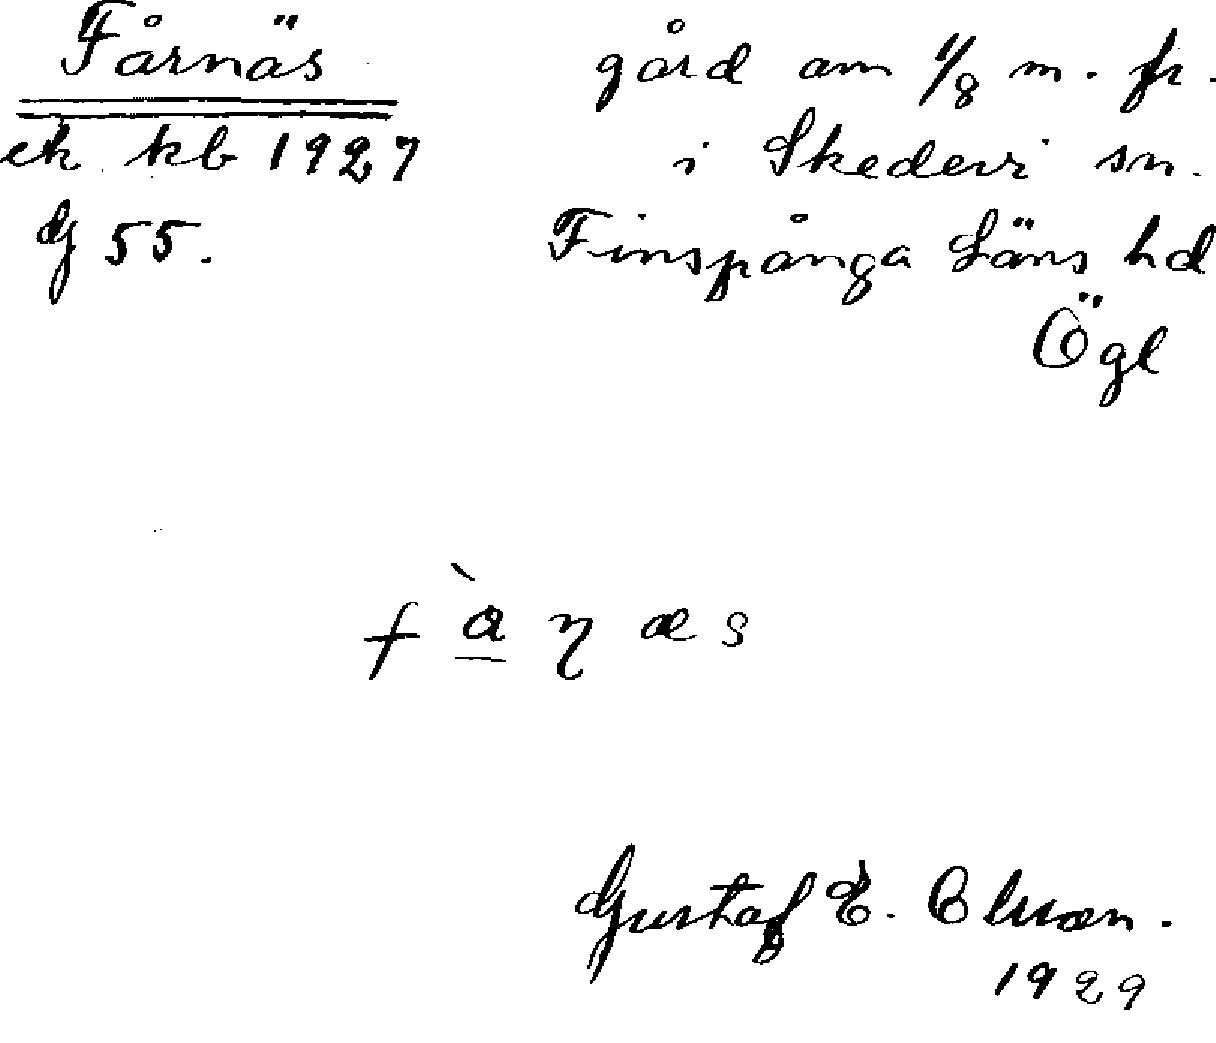 Fårnäs
ek kb 1927
G 55.
gård om 1/8 m. fr.
i Skedevi sn.
Finspånga Läns hd
Ögl
f à η æ s
Gustaf E. Olsson.
1929